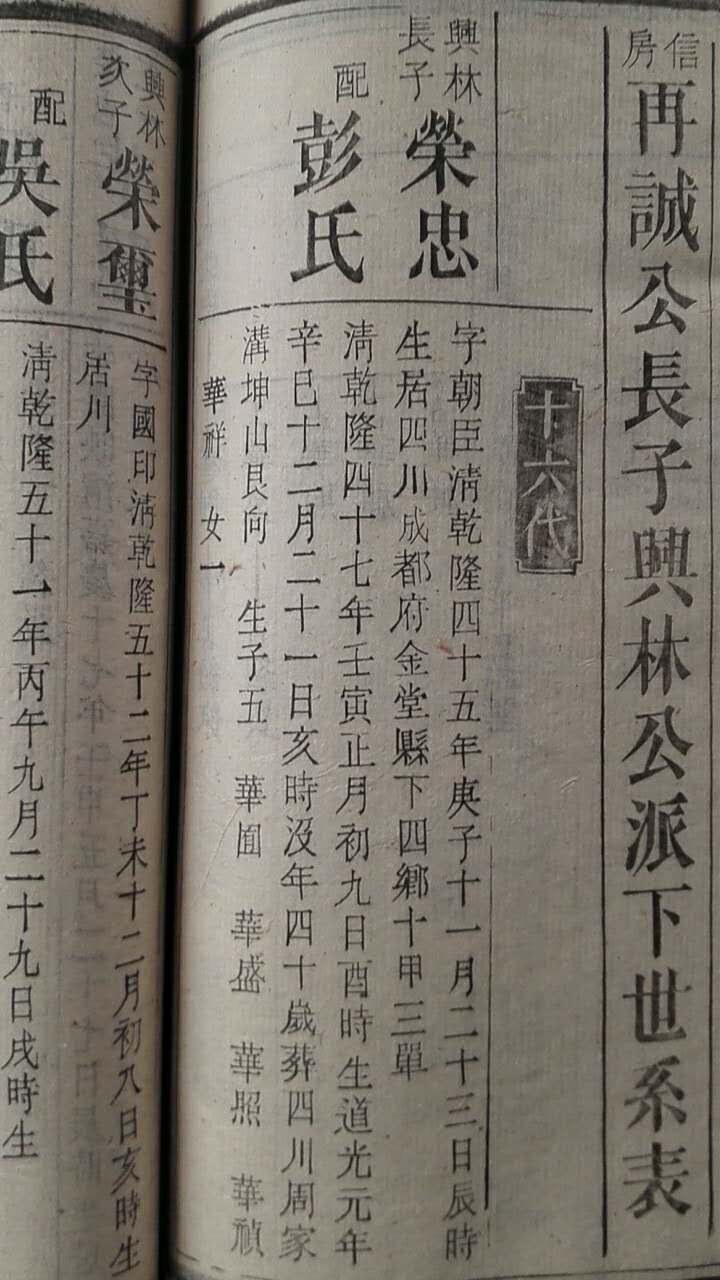 信房
再誠公長子興林公派下世系表
十六代
興林長子
榮忠
字朝臣淸乾隆四十五年庚子十一月二十三日辰時
生居四川成都府金堂縣下四鄉十甲三單
配
彭氏
淸乾隆四十七年壬寅正月初九日酉時生道光元年
辛巳十二月二十一日亥時沒年四十歲葬四川周家
溝坤山艮向 生子五 華囿 華盛 華照 華禎
華祥 女一
興林次子
榮璽
字國印淸乾隆五十二年丁未十二月初八日亥時生
居川
配
吳氏
淸乾隆五十一年丙午九月二十九日戌時生